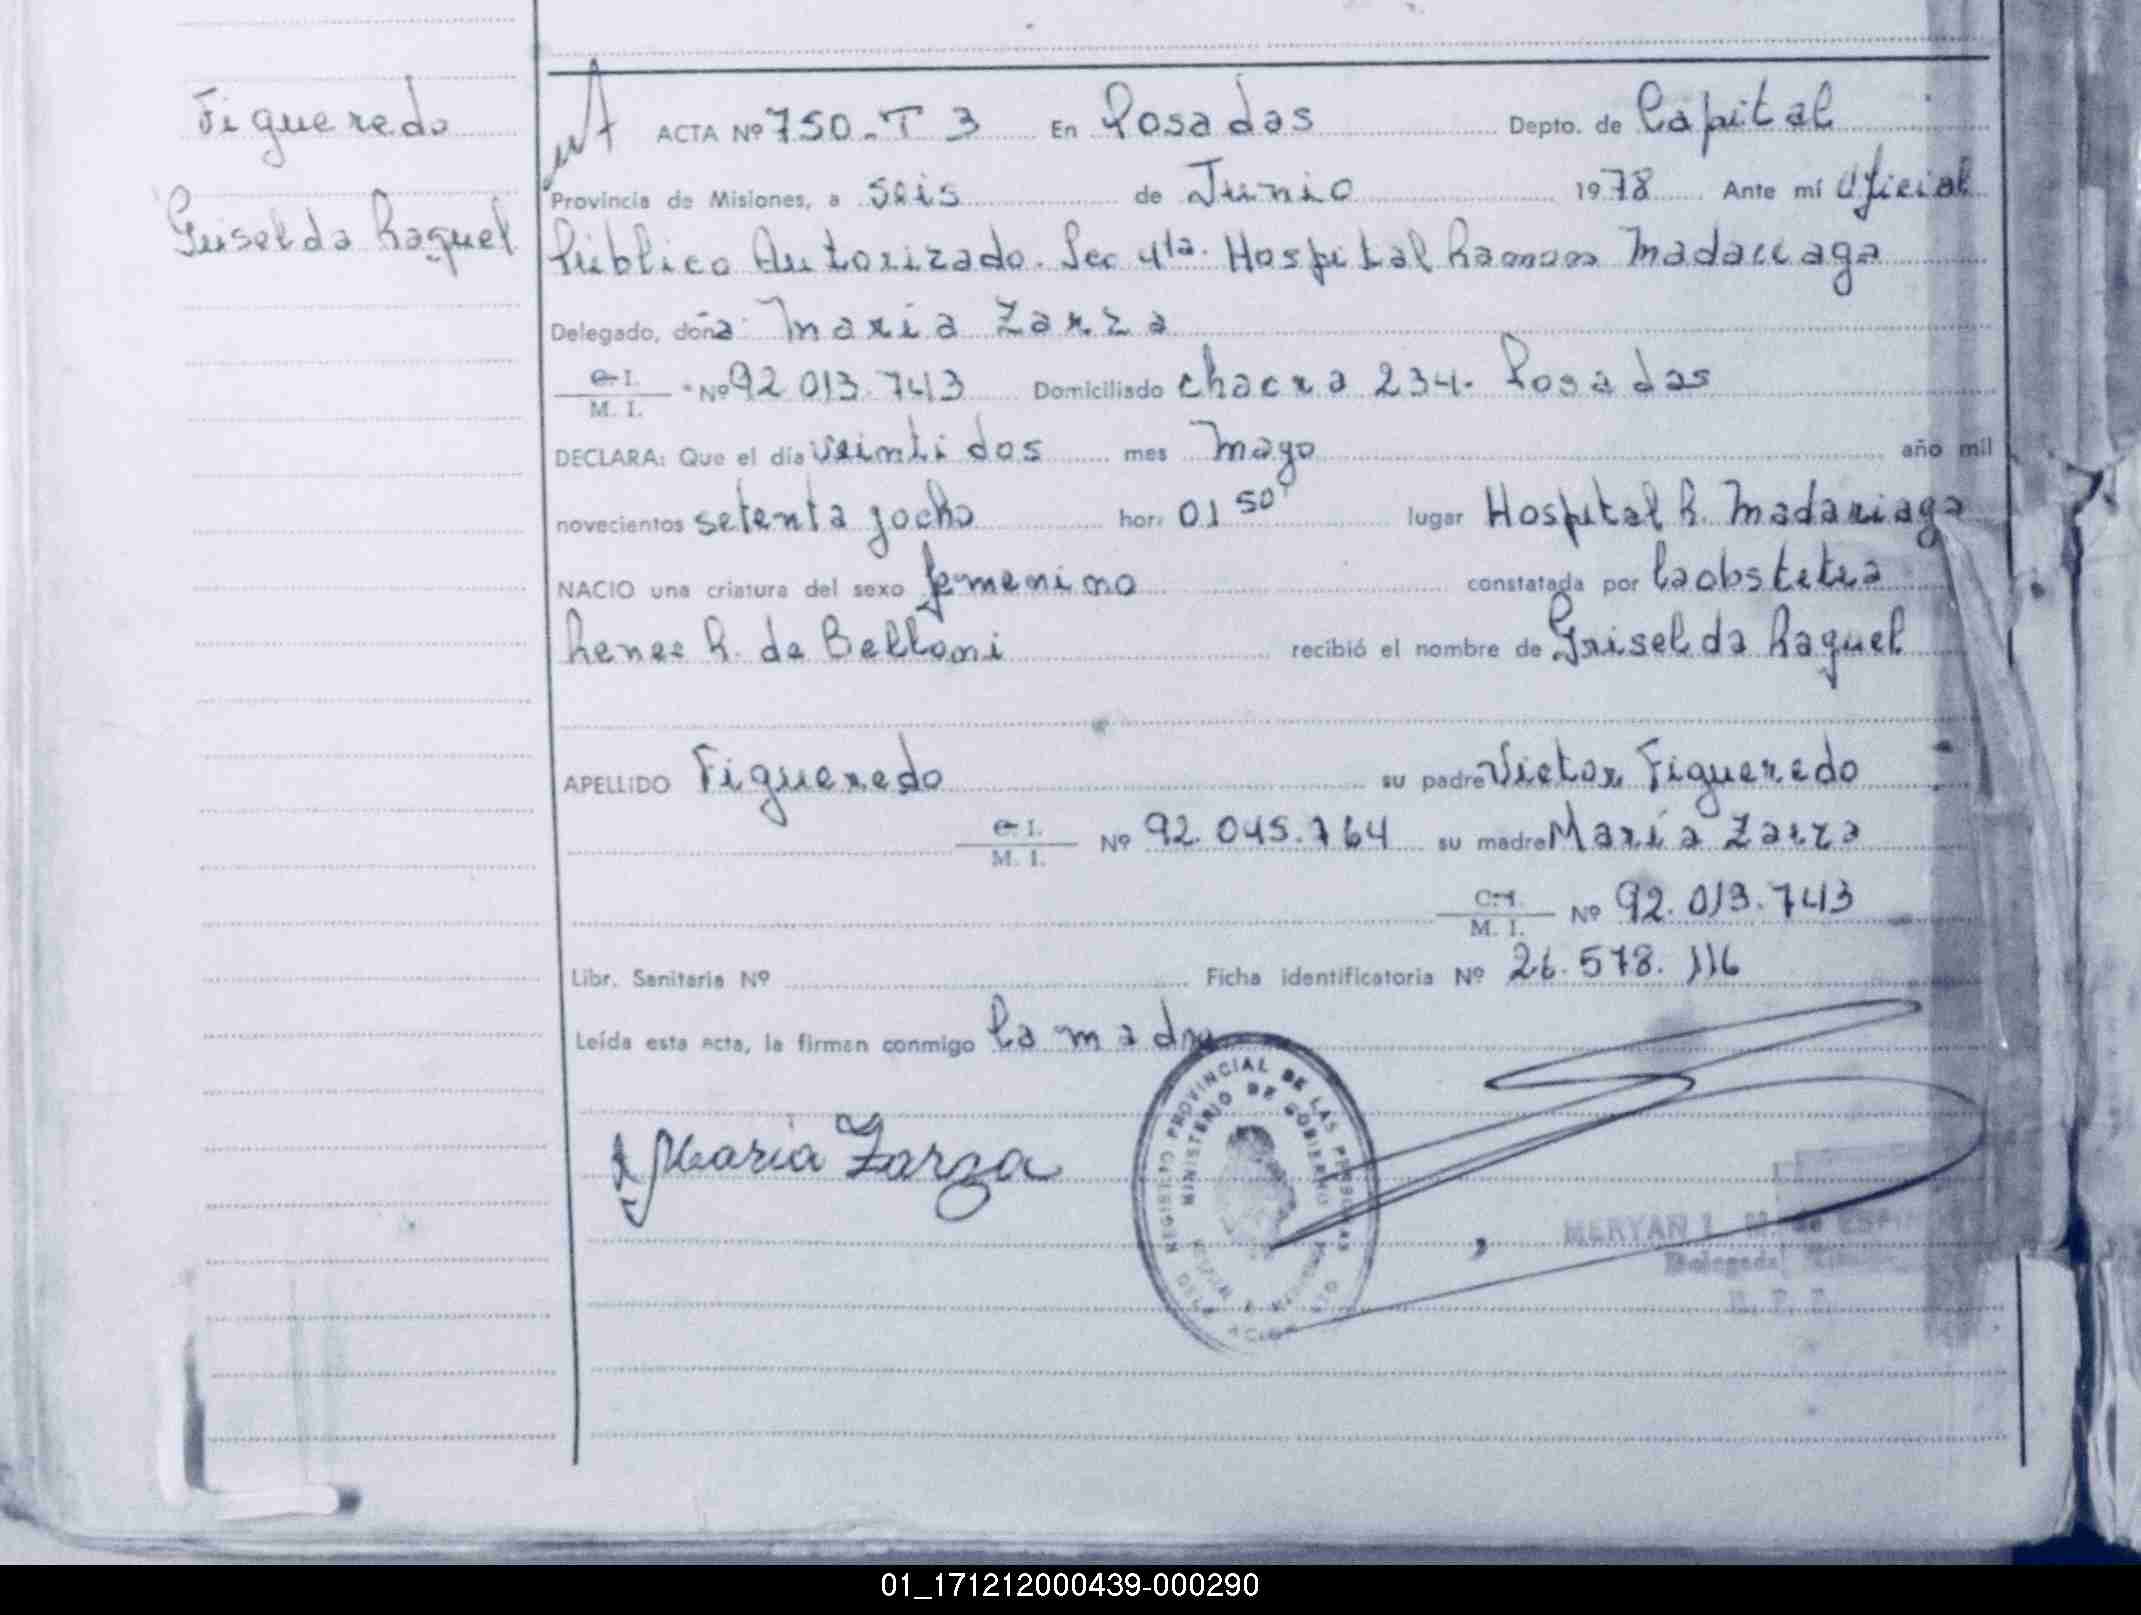 Figueredo
Griselda Raquel
ACTA Nº 750.-T 3 En Posadas Depto. de Capital
Provincia de Misiones, a seis de Junio 1978 Ante mí Oficial
Público Autorizado. Sec 4ta. Hospital Ramon Madariaga
Delegado, doña Maria Zarza
C. I. / M. I. Nº 92 013.743 Domiciliado chacra 234. Posadas
DECLARA: Que el día veinti dos mes Mayo año mil
novecientos setenta yocho hora 01 50' lugar Hospital R. Madariaga
NACIO una criatura del sexo femenino constatada por la obstetra
Renee R. de Belloni recibió el nombre de Griselda Raquel
APELLIDO Figueredo su padre Victor Figueredo
C. I. / M. I. Nº 92.045.764 su madre Maria Zarza
C. I. / M. I. Nº 92.013.743
Libr. Sanitaria Nº Ficha identificatoria Nº 26.578.116
Leída esta acta, la firman conmigo la madre
Maria Zarza
REGISTRO PROVINCIAL DE LAS PERSONAS
MINISTERIO DE GOBIERNO
MERYAN
Delegada
01_171212000439-000290